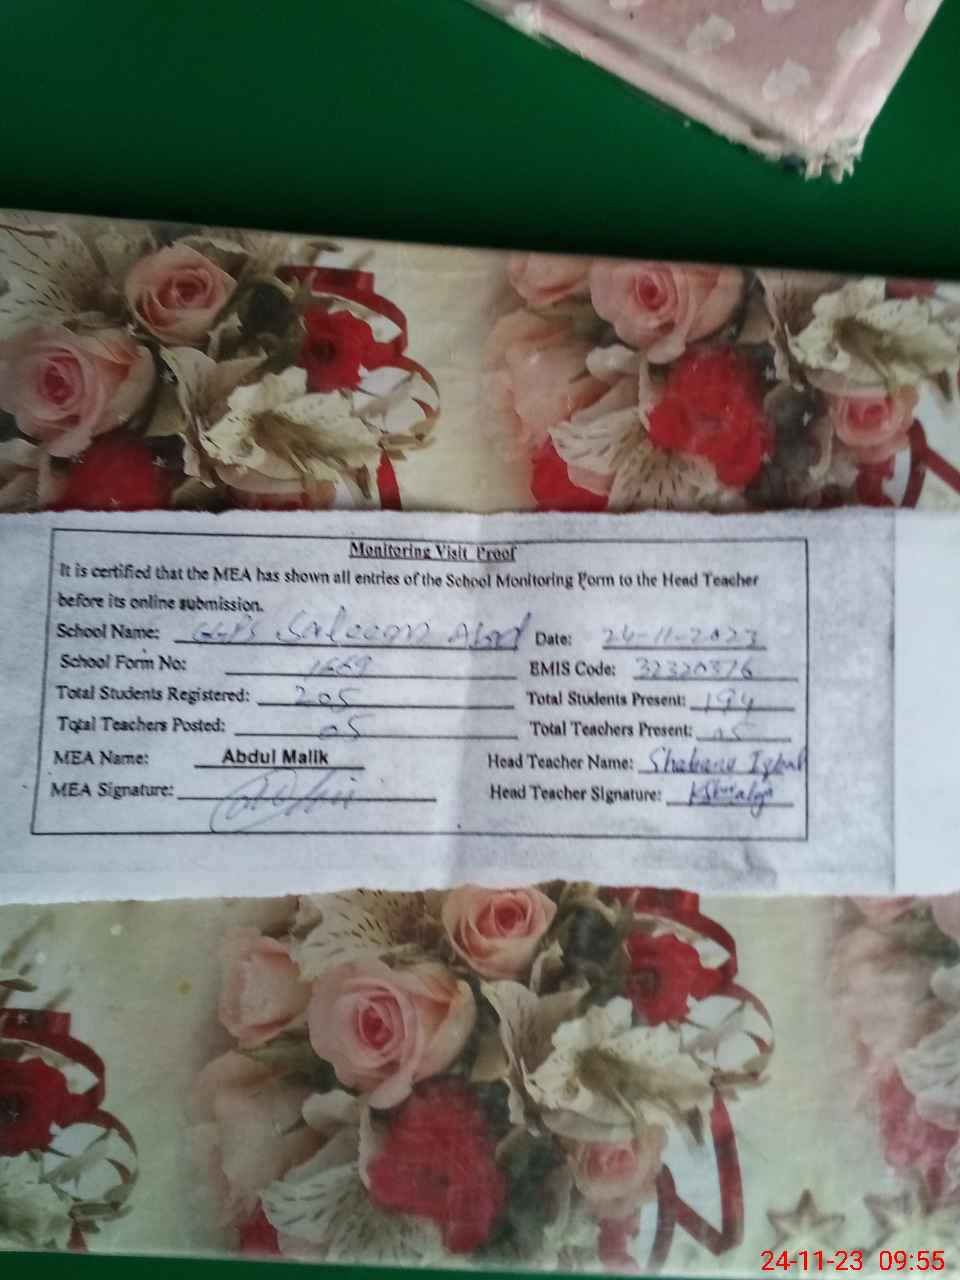 Monitoring Visit Proof
It is certified that the MEA has shown all entries of the School Monitoring Form to the Head Teacher
before its online submission.
School Name: GGPS Saleem Abad Date: 24-11-2023
School Form No: EMIS Code: 32320376
Total Students Registered: 205 Total Students Present: 194
Total Teachers Posted: 05 Total Teachers Present: 05
MEA Name: Abdul Malik Head Teacher Name: Shabana Iqbal
MEA Signature: Head Teacher Signature:
24-11-23 09:55